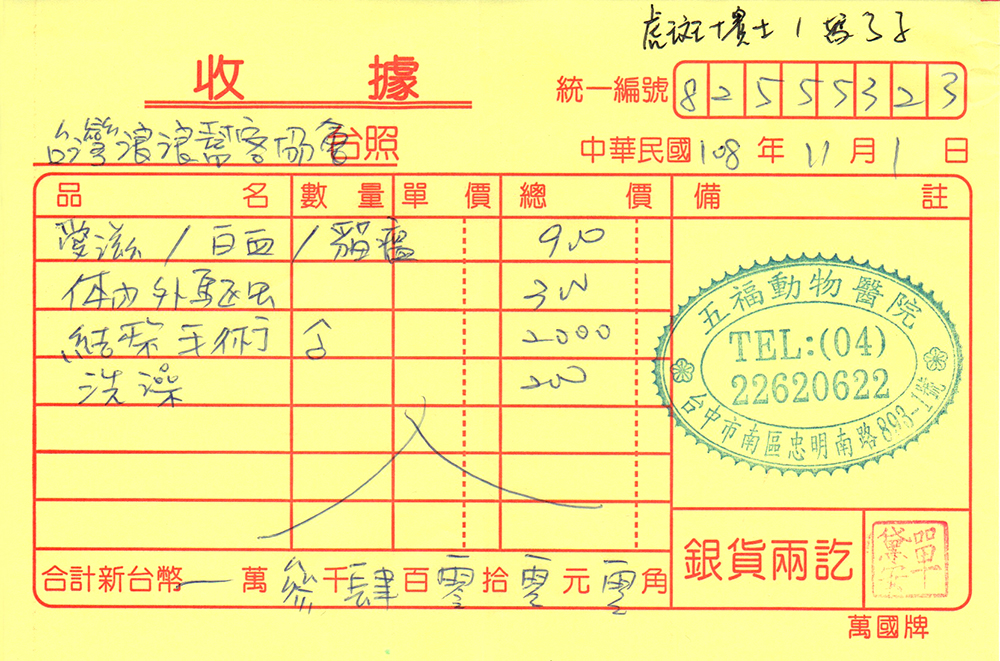 虎斑+賓士 / 媽了子
收 據
統一編號 82555323
台灣浪浪幫客協會 台照
中華民國 108 年 11 月 1 日
品名 數量 單價 總價 備註
愛滋/白血/貓瘟 900
体內外驅虫 300
結紮手術 ♀ 2000
洗澡 200
五福動物醫院
TEL:(04)
22620622
台中市南區忠明南路893-1號
合計新台幣 一 萬 參 千 肆 百 零 拾 零 元 零 角
銀貨兩訖
萬國牌